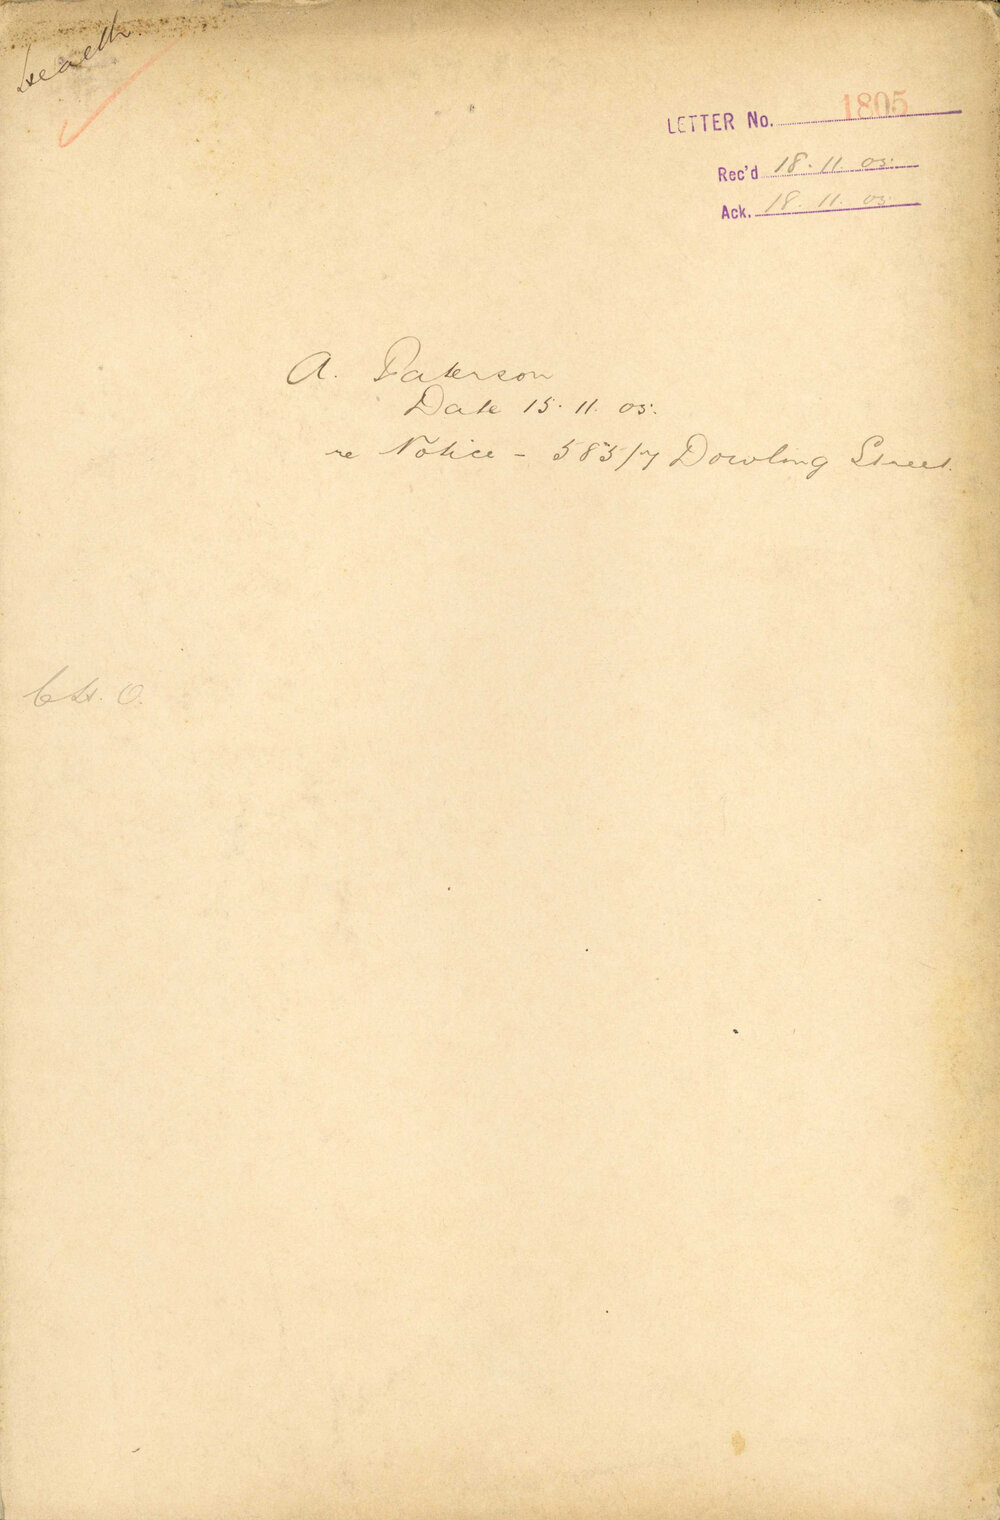 Health
LETTER No. 1805
Rec'd 18. 11. 05.
Ack. 18. 11. 05.
A. Paterson
Date 15. 11. 05.
re Notice - 585/7 Dowling Street.
C.H. O.